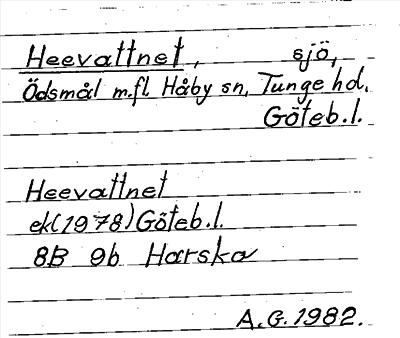 Heevattnet, sjö,
Ödsmål m.fl. Håby sn, Tunge hd,
Göteb.l.
Heevattnet
ek(1978)Göteb.l.
8B 9b Harska
A.G.1982.